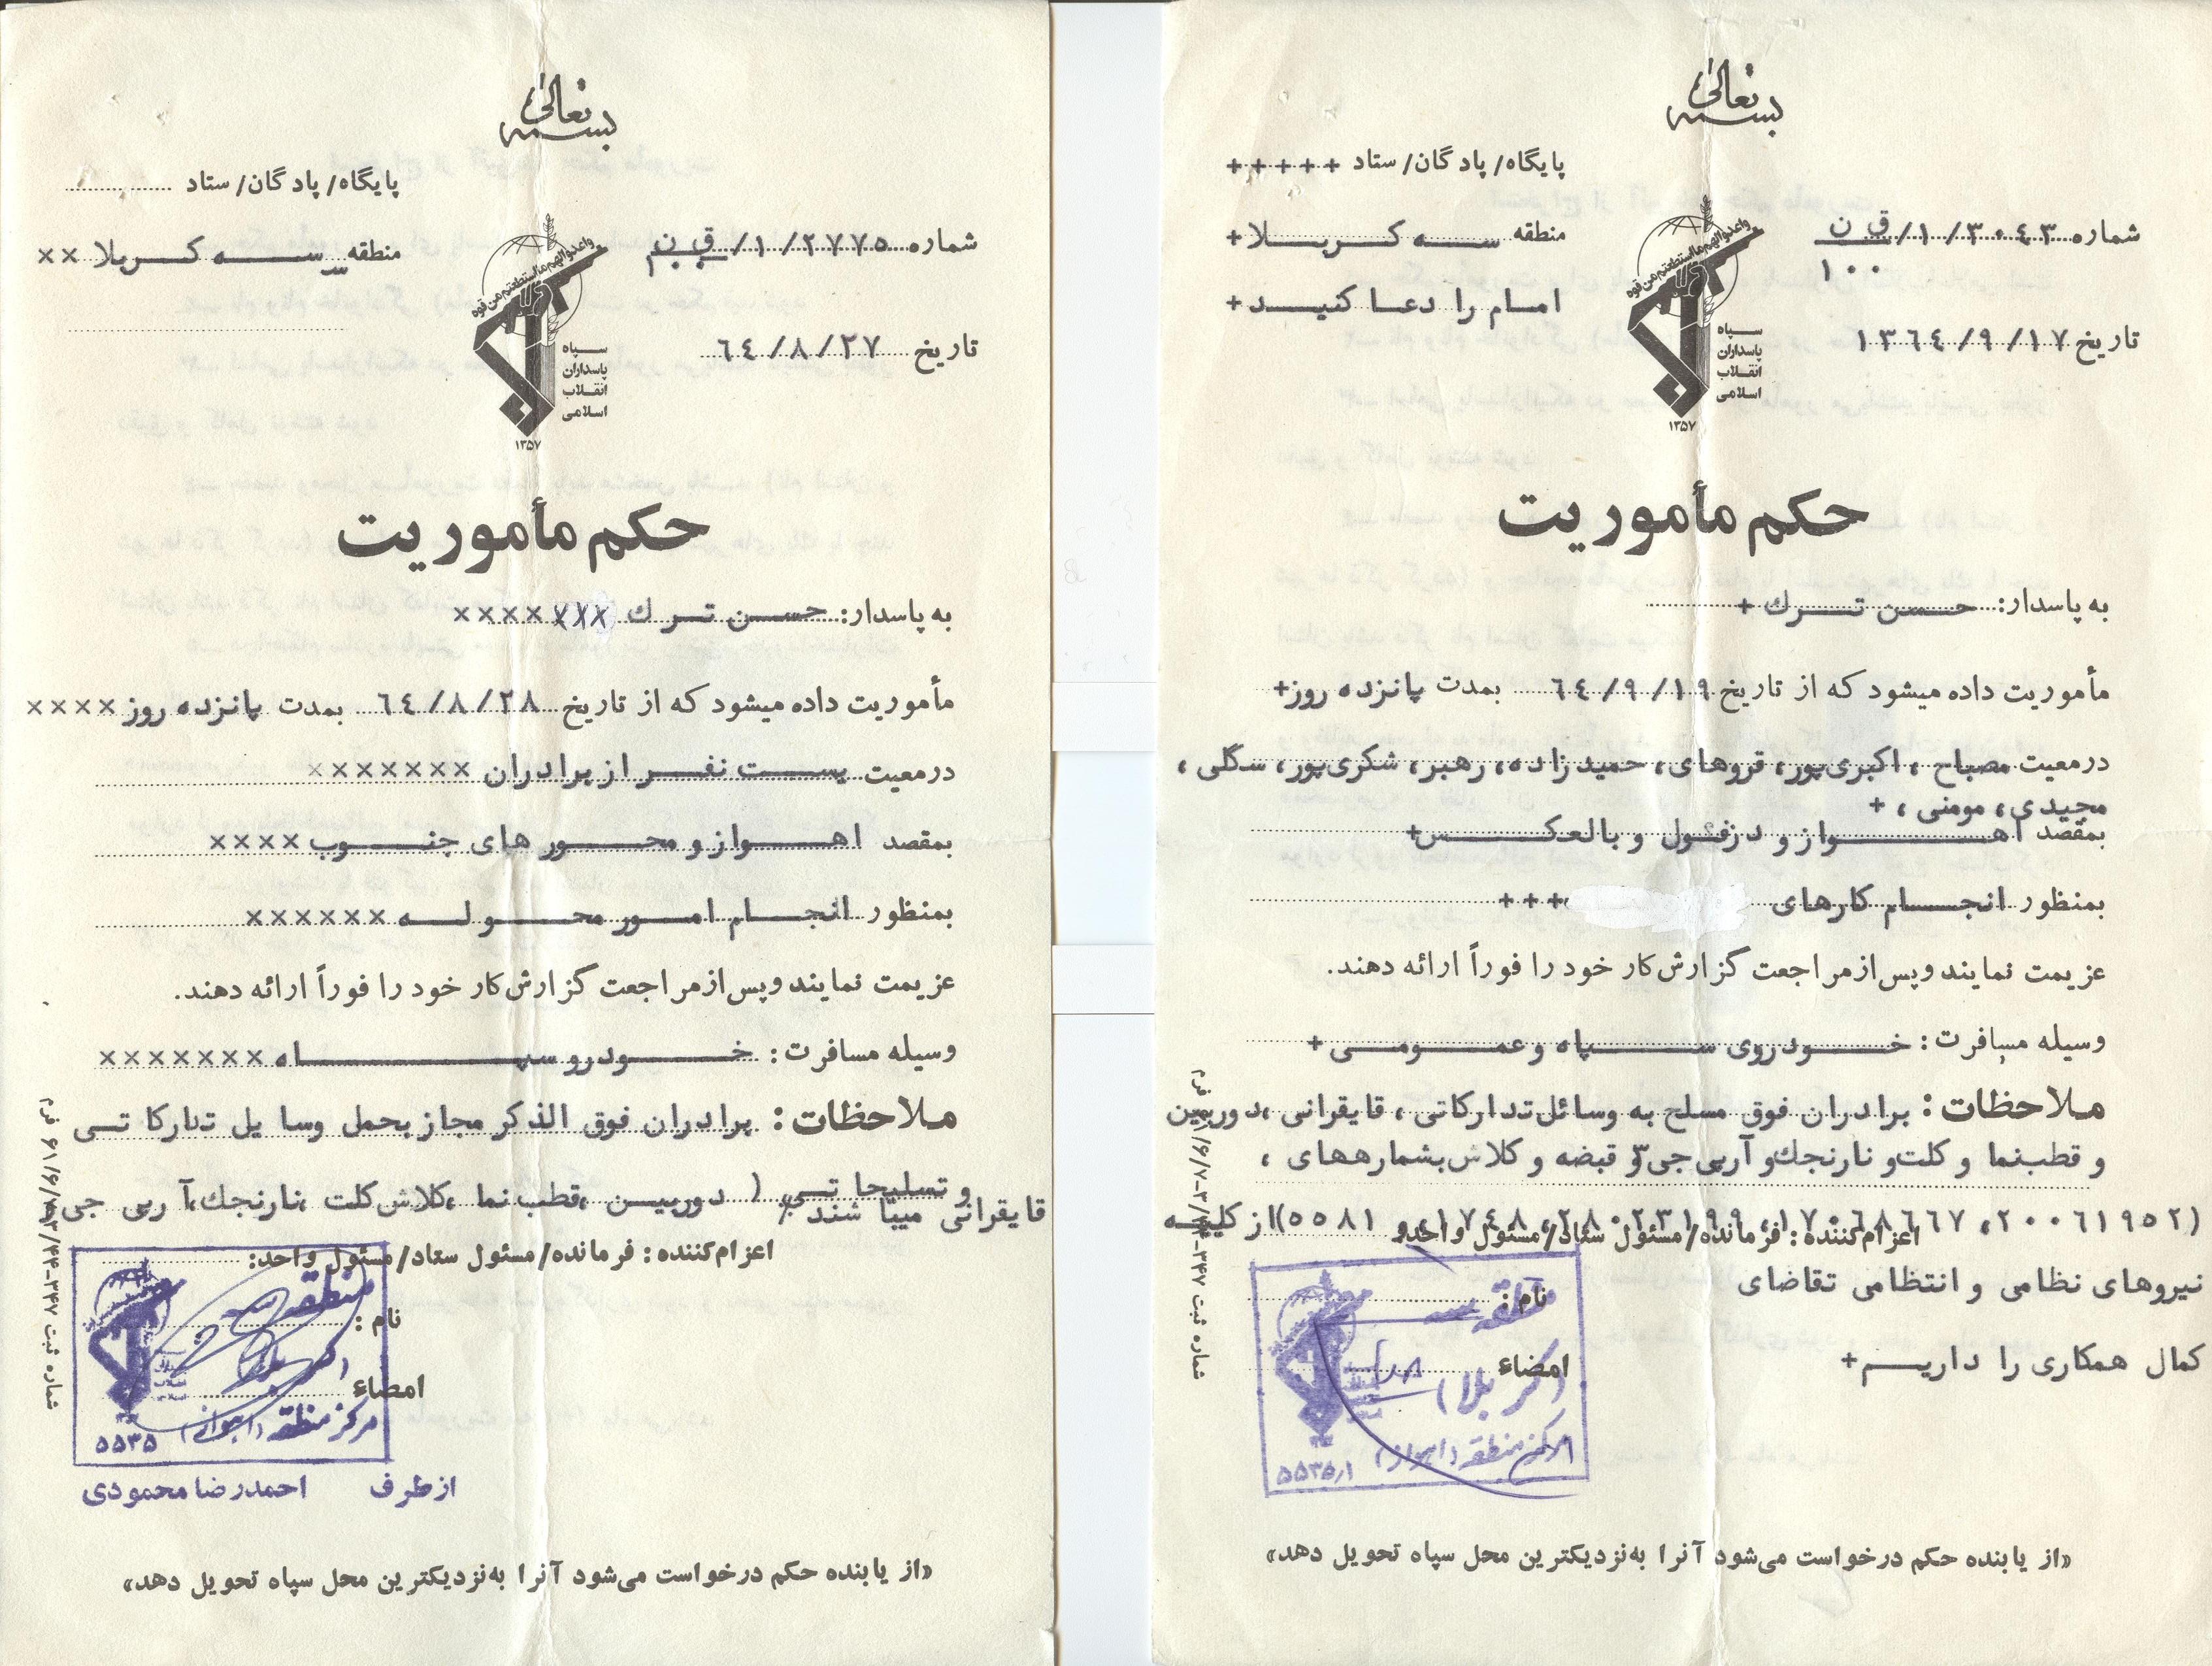 بسمه تعالی
پایگاه/ پادگان/ ستاد +++++
منطقه سه کربلا+
امام را دعا کنید+
شماره ٣٠٤٣/١/ق ن
١٠٠
تاریخ ١٣٦٤/٩/١٧
سپاه
پاسداران
انقلاب
اسلامی
۱۳۵۷
حکم مأموریت
به پاسدار: حسن ترك+
مأموریت داده میشود که از تاریخ ٦٤/٩/١٩ بمدت پانزده روز+
درمعیت مصباح ، اکبری‌پور، قروهای، حمیدزاده، رهبر، شکری‌پور، سگلی ،
مجیدی، مومنی ، +
بمقصد اهواز و دزفول و بالعکس+
بمنظور انجام کارهای +++
عزیمت نمایند و پس از مراجعت گزارش کار خود را فوراً ارائه دهند.
وسیله مسافرت: خودروی سپاه و عمومی+
ملاحظات: برادران فوق مسلح به وسائل تدارکاتی ، قایقرانی ،دوربین
و قطب‌نما و کلت‌و نارنجك‌و آرپی‌جی ۳و قبضه و کلاش بشماره‌های ،
از کلیه
اعزام‌کننده: فرمانده/مسئول ستاد/مسئول واحد:
نیروهای نظامی و انتظامی تقاضای
کمال همکاری را داریم+
نام:
امضاء
منطقه سه
(کربلا)
مرکز منطقه (اهواز)
۵۵۳۵/۱
«از یابنده حکم درخواست می‌شود آنرا به‌نزدیکترین محل سپاه تحویل دهد»
بسمه تعالی
پایگاه/ پادگان/ ستاد
منطقه سه کربلا ××
شماره ٢٧٧٥/١/ق ن
تاریخ ٦٤/٨/٢٧
سپاه
پاسداران
انقلاب
اسلامی
۱۳۵۷
حکم مأموریت
به پاسدار: حسن ترك ×××××××
مأموریت داده میشود که از تاریخ ٦٤/٨/٢٨ بمدت پانزده روز ××××
درمعیت بیست نفر از برادران ×××××××
بمقصد اهواز و محور های جنوب ××××
بمنظور انجام امور محوله ××××××
عزیمت نمایند و پس از مراجعت گزارش کار خود را فوراً ارائه دهند.
وسیله مسافرت: خودرو سپاه ×××××××
ملاحظات: برادران فوق الذکر مجاز بحمل وسا یل تدارکا تی
و تسلیحا تی ( دوربین ،قطب‌نما ،کلاش کلت ،نارنجك،آ رپی جی
قایقرانی میبا شند /
اعزام‌کننده: فرمانده/مسئول ستاد/مسئول واحد:
نام:
امضاء
منطقه سه
کربلا
مرکز منطقه (اهواز)
۵۵۳۵
ازطرف احمدرضا محمودی
«از یابنده حکم درخواست می‌شود آنرا به‌نزدیکترین محل سپاه تحویل دهد»